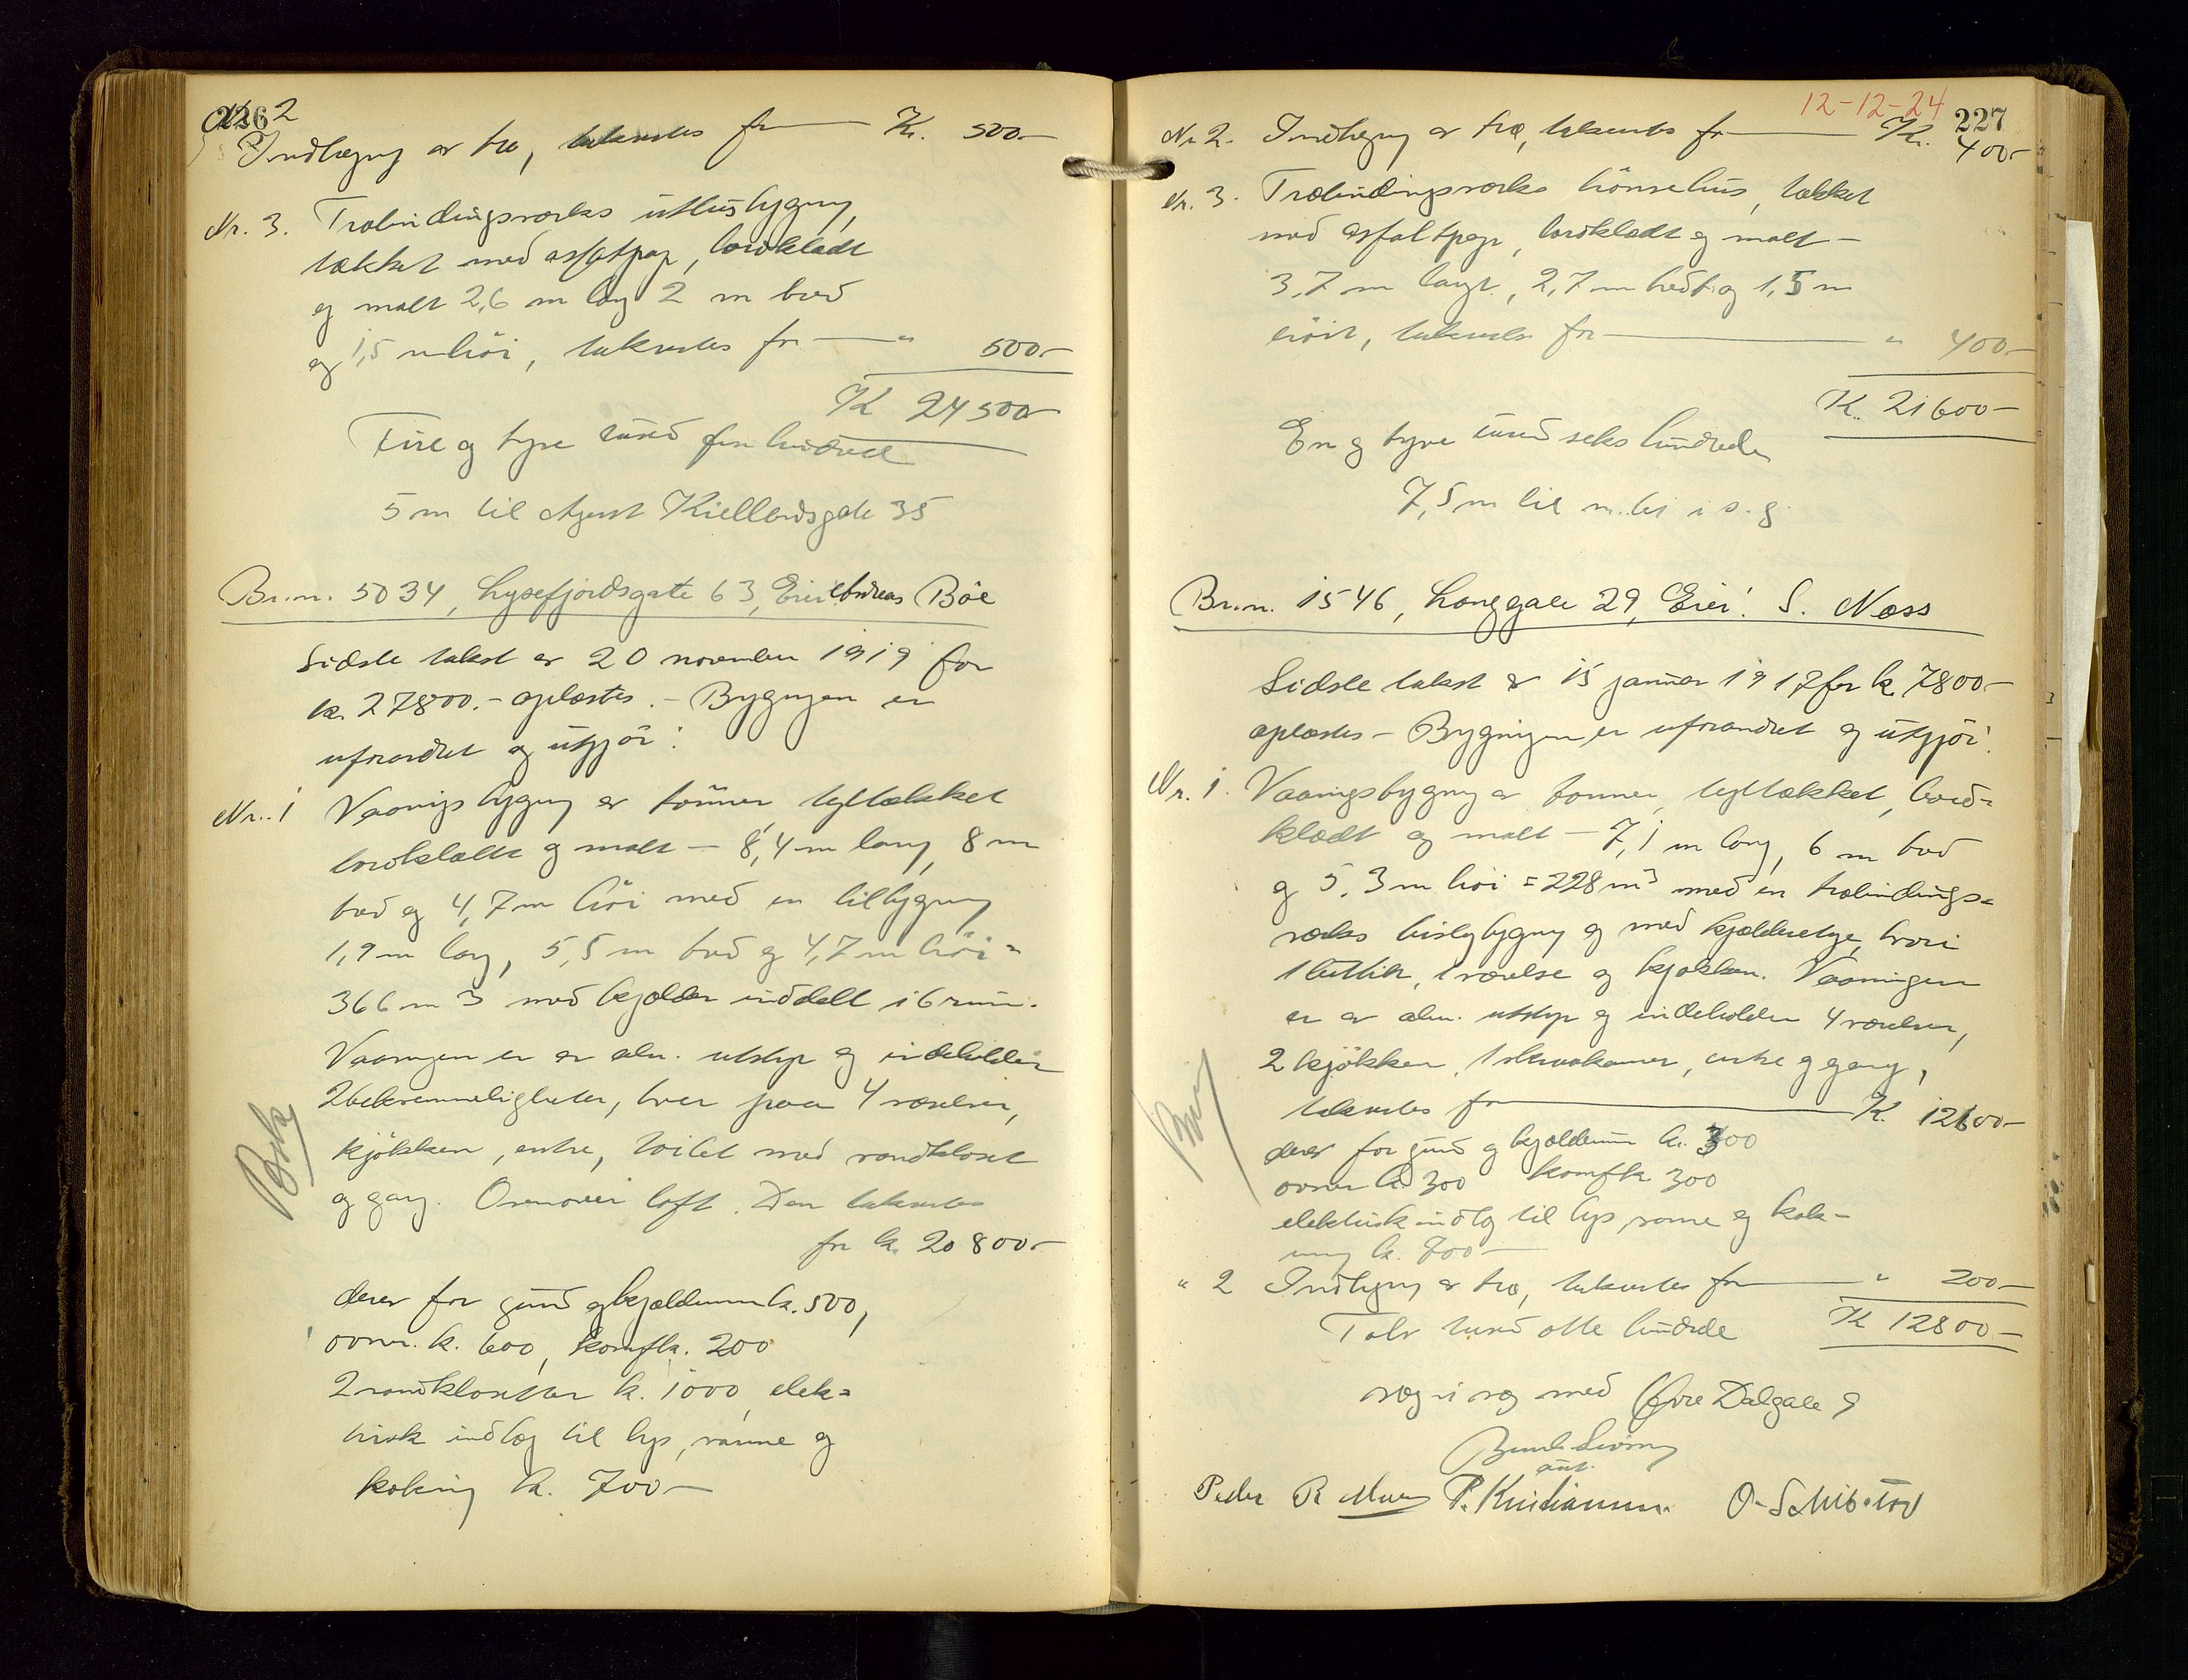 226
Nr. 2
Indhegning av træ, takseres for Kr. 500.-
Nr. 3. Træbindingsverks uthusbygning,
tækket med asfaltpap, bordklædt
og malt 2,6 m lang 2 m bred
og 1,5 m höi, takseres for " 500.-
K 24500-
Fire og tyve tused fem hundrede
5 m til Agent Kiellandsgate 35
Br.n. 5034, Lysefjordsgate 63, Eier: Andreas Böe
Sidste takst er 20 november 1919 for
kr. 27800.- oplæstes. - Bygningen er
uforandret og utgjör:
Nr. 1 Vaaningsbygning av tömmer tegltækket
bordklædt og malt - 8,4 m lang, 8 m
bred og 4,7 m höi med en tilbygning
1,9 m lang, 5,5 m bred og 4,7 m höi =
366 m 3 med kjelder inddelt i 6 rum.
Vaaningen er av alm. utstyr og indeholder
2 bekvemmeligheter, hver paa 4 værelser,
kjökken, entre, toilet med vandkloset
og gang. Ovenover loft. Den takseres
for k. 20800.-
derav for grund og kjelderrum k. 500,
ovner k. 600, komf. k. 200
2 vandklosetter k. 1000, elek=
trisk indlæg til lys, varme og
koking k. 700-
Bok
12-12-24
227
Nr 2. Indhegning av træ, takseres for Kr. 400.-
Nr. 3. Træbindingsverks hönsehus, tækket
med asfaltpap, bordklædt og malt -
3,7 m langt, 2,7 m bredt og 1,5 m
höit, takseres for " 400.-
K. 21600-
En og tyve tused seks hundrede
7,5 m til n. hus i s. g.
Br.n. 1546, Langgate 29, Eier: S. Næss
Sidste takst er 15 januar 1917 for k. 7800-
oplæstes - Bygningen er uforandret og utgjör:
Nr. 1. Vaaningsbygning av tömmer, tegltækket, bord=
klædt og malt - 7,1 m lang, 6 m bred
og 5,3 m höi = 228 m3 med en træbindings=
verks bislagbygning og med kjelderetage, hvori
1 butik, 1 værelse og kjökken. Vaaningen
er av alm. utstyr og indeholder 4 værelser,
2 kjökken, 1 skraakamer, entre og gang,
takseres for K. 12600-
derav for grund og kjelderrum k. 300
ovner k. 300 komf k. 300
elektrisk indlæg til lys, varme og kok-
ning k. 700-
" 2 Indhegning av træ, takseres for " 200-
Tolv tused otte hundrede K 12800-
væg i væg med Øvre Dalgate 9
Peder R. P. Kristiansen O. Schibsted